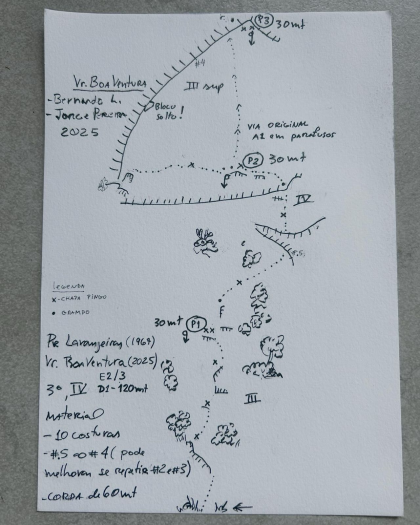 P3 30mt
#4
Vr. BOA VENTURA
- Bernardo L.
- Jorge Pereira
2025
III sup
Bloco
solto!
VIA ORIGINAL
A1 em parafusos
P2 30mt
IV
#.5
LEGENDA
x - CHAPA PINGO
• GRAMPO
30mt P1
Pe Laranjeiras (1964)
Vr. Boa Ventura (2025)
E2/3
3º, IV D1 - 120mt
III
MATERIAL
- 10 costuras
- #.5 ao #4 (pode
melhorar se repetir #2 e #3)
- CORDA de 60mt